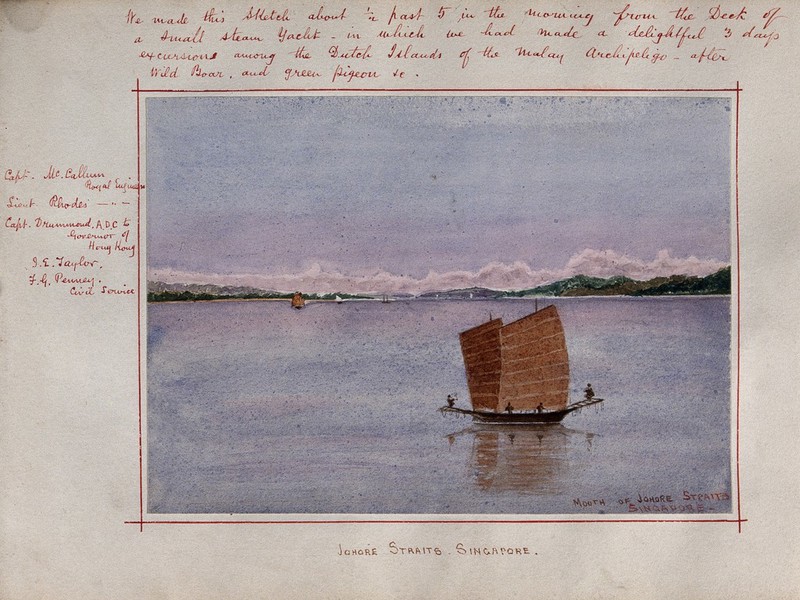 We made this Sketch about ½ past 5 in the morning from the Deck of
a small steam Yacht - in which we had made a delightful 3 days
excursions among the Dutch Islands of the Malay Archipeligo - after
Wild Boar, and green pigeon &c.
Capt. McCallum
Royal Engineers
Lieut. Rhodes — " —
Capt. Drummond, A.D.C to
Governor of
Hong Kong
J.E. Taylor.
F.G. Penney.
Civil Service
MOUTH OF JOHORE STRAITS
SINGAPORE.
JOHORE STRAITS. SINGAPORE.